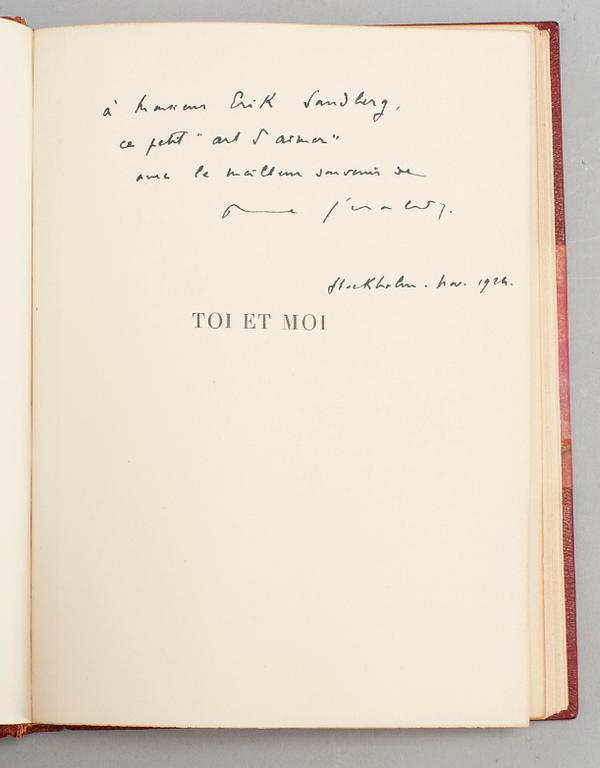 à Monsieur Erik Sandberg,
ce petit "art d'aimer"
avec le meilleur souvenir de
Géraldy.
Stockholm. nov. 1924.
TOI ET MOI